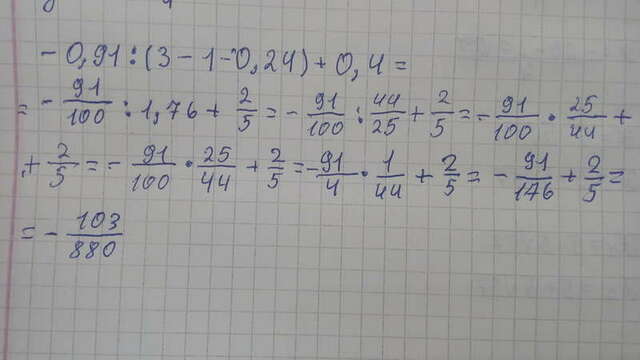 - 0,91 : (3 - 1 - 0,24) + 0,4 =
= - 91/100 : 1,76 + 2/5 = - 91/100 : 44/25 + 2/5 = - 91/100 · 25/44 +
+ 2/5 = - 91/100 · 25/44 + 2/5 = - 91/4 · 1/44 + 2/5 = - 91/176 + 2/5 =
= - 103/880